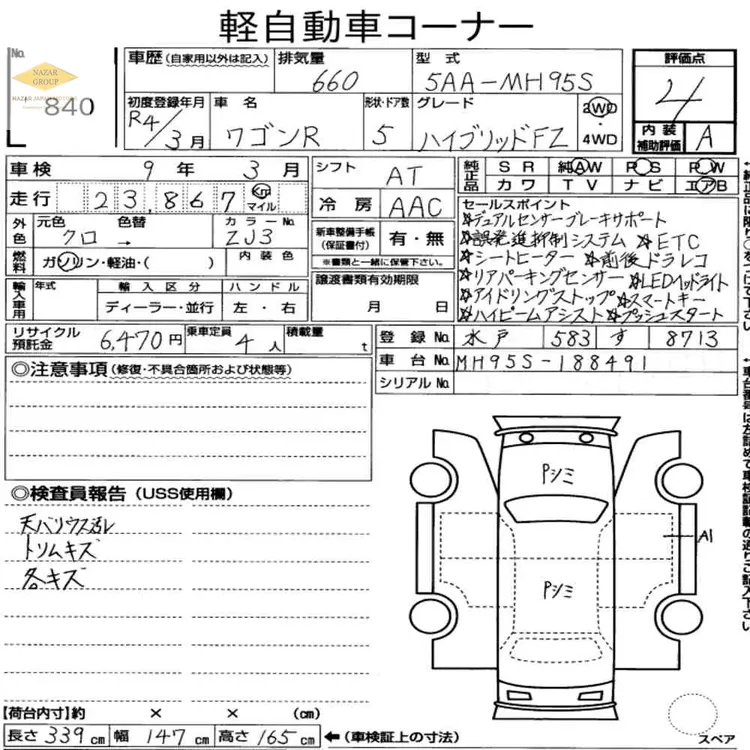 軽自動車コーナー
No.
NAZAR
GROUP
840
車歴 (自家用以外は記入)
排気量
660
型式
5AA-MH95S
評価点
4
内装
補助評価
A
初度登録年月
R4/3月
車名
ワゴンR
形状・ドア数
5
グレード
ハイブリッドFZ
2WD
・
4WD
車検 9年 3月
走行 23,867 Km
マイル
シフト
AT
冷房
AAC
純正品
SR 純AW PS PW
カワ TV ナビ エアB
外色
元色
クロ
色替
→
カラーNo.
ZJ3
燃料
ガソリン・軽油・( )
内装色
新車整備手帳
(保証書付)
有・無
※書類と一緒に保管して下さい。
輸入車用
年式
輸入区分
ディーラー・並行
ハンドル
左・右
譲渡書類有効期限
月 日
セールスポイント
☆デュアルセンサーブレーキサポート
☆誤発進抑制システム ☆ETC
☆シートヒーター ☆前後ドラレコ
☆リアパーキングセンサー ☆LEDヘッドライト
☆アイドリングストップ ☆スマートキー
☆ハイビームアシスト ☆プッシュスタート
リサイクル
預託金
6,470円
乗車定員
4人
積載量
t
登録No. 水戸 583 す 8713
車台No. MH95S-188491
シリアルNo.
◎注意事項 (修復・不具合箇所および状態等)
◎検査員報告 (USS使用欄)
トリムキズ
各キズ
Pシミ
Pシミ
A1
スペア
【荷台内寸】約 × × (cm)
長さ 339cm 幅 147cm 高さ 165cm ←(車検証上の寸法)